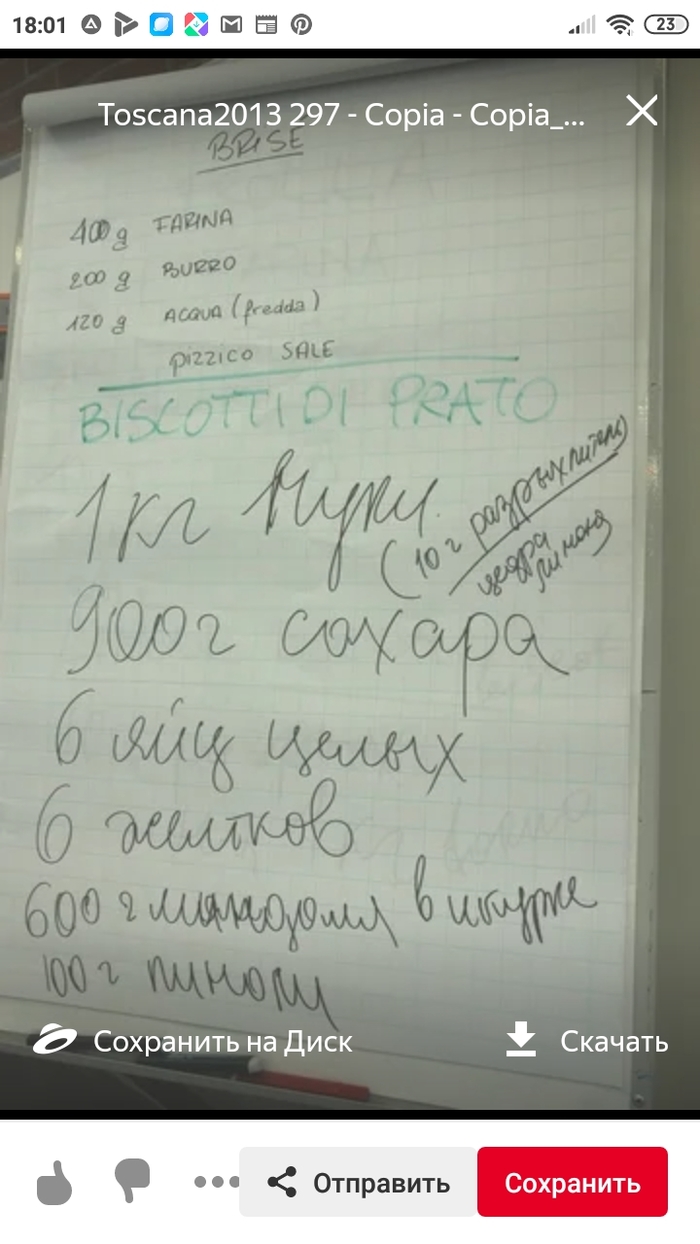 18:01
23
Toscana2013 297 - Copia - Copia_...
BRISE
400 g FARINA
200 g BURRO
120 g ACQUA (fredda)
pizzico SALE
BISCOTTI DI PRATO
1 кг муки
(10 г разрыхлитель)
цедра
лимона
900 г сахара
6 яиц целых
6 желтков
600 г миндаля в шкурке
100 г пиноли
Сохранить на Диск
Скачать
Отправить
Сохранить